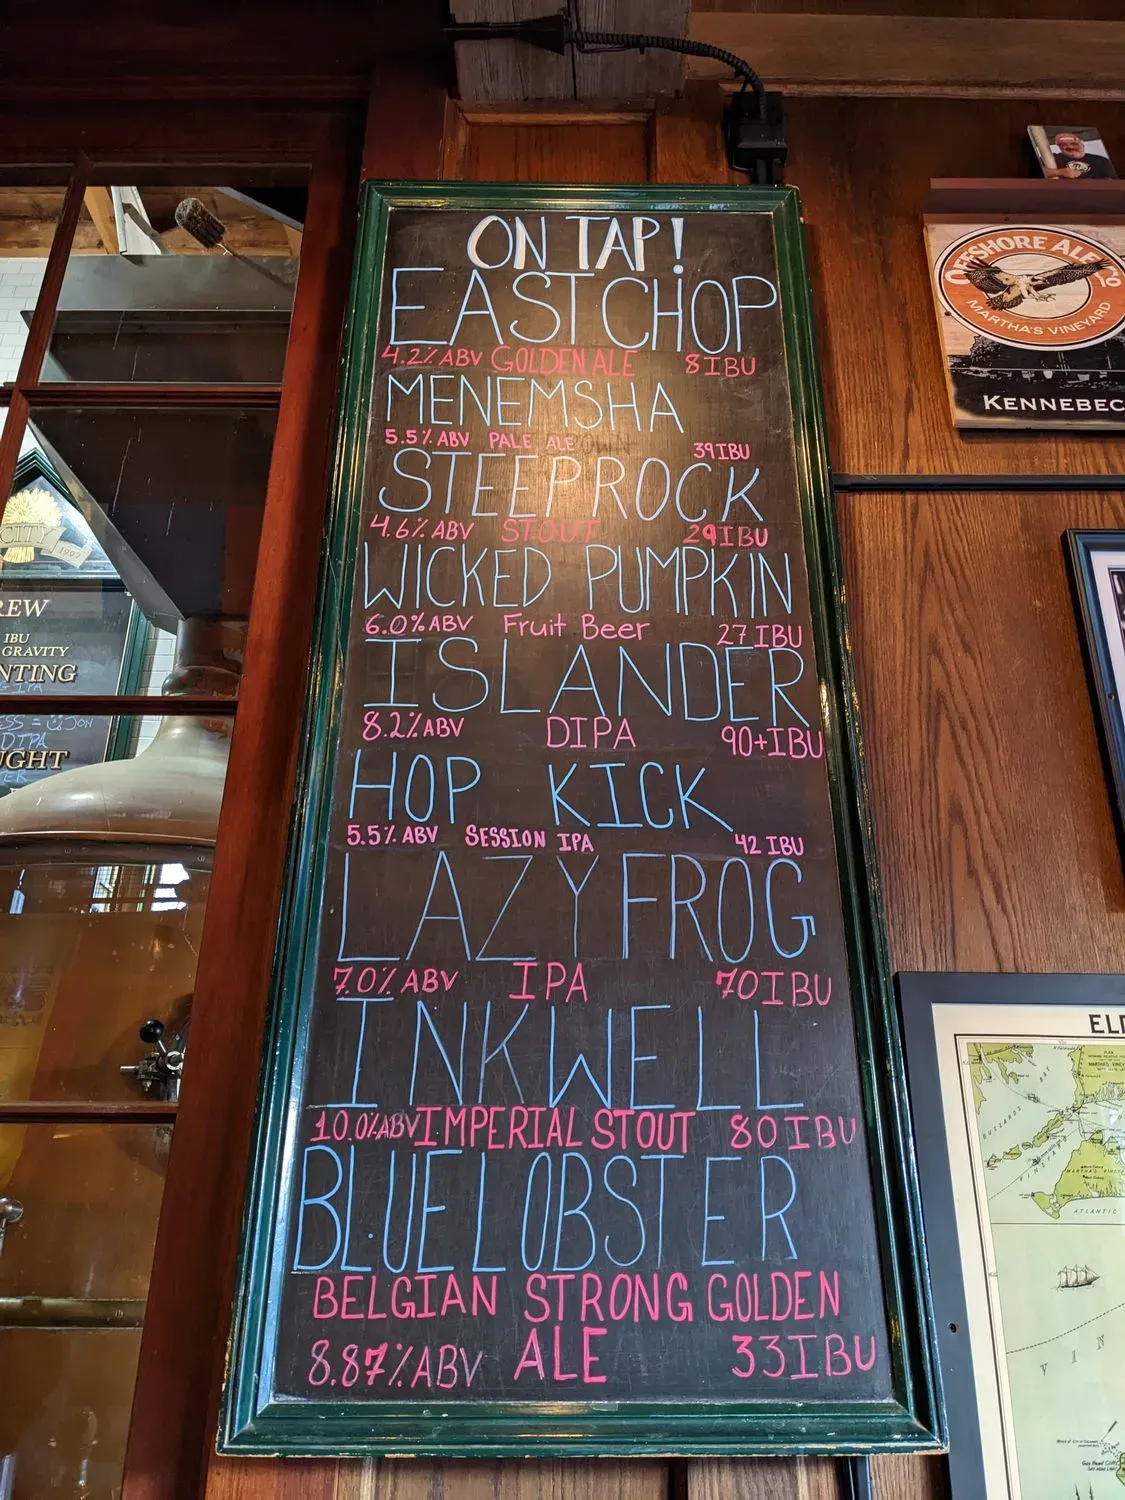 ON TAP!
EAST CHOP
4.2% ABV GOLDEN ALE 8 IBU
MENEMSHA
5.5% ABV PALE ALE 39 IBU
STEEPROCK
4.6% ABV STOUT 29 IBU
WICKED PUMPKIN
6.0% ABV Fruit Beer 27 IBU
ISLANDER
8.2% ABV DIPA 90+IBU
HOP KICK
5.5% ABV SESSION IPA 42 IBU
LAZY FROG
7.0% ABV IPA 70 IBU
INKWELL
10.0% ABV IMPERIAL STOUT 80 IBU
BLUE LOBSTER
BELGIAN STRONG GOLDEN
8.87% ABV ALE 33 IBU
OFFSHORE ALE Co
MARTHA'S VINEYARD
KENNEBEC
CITY
1997
REW
IBU
GRAVITY
NTING
IPA
ESS = JON
DIPA
UGHT
ER
ELD
ATLANTIC
VIN